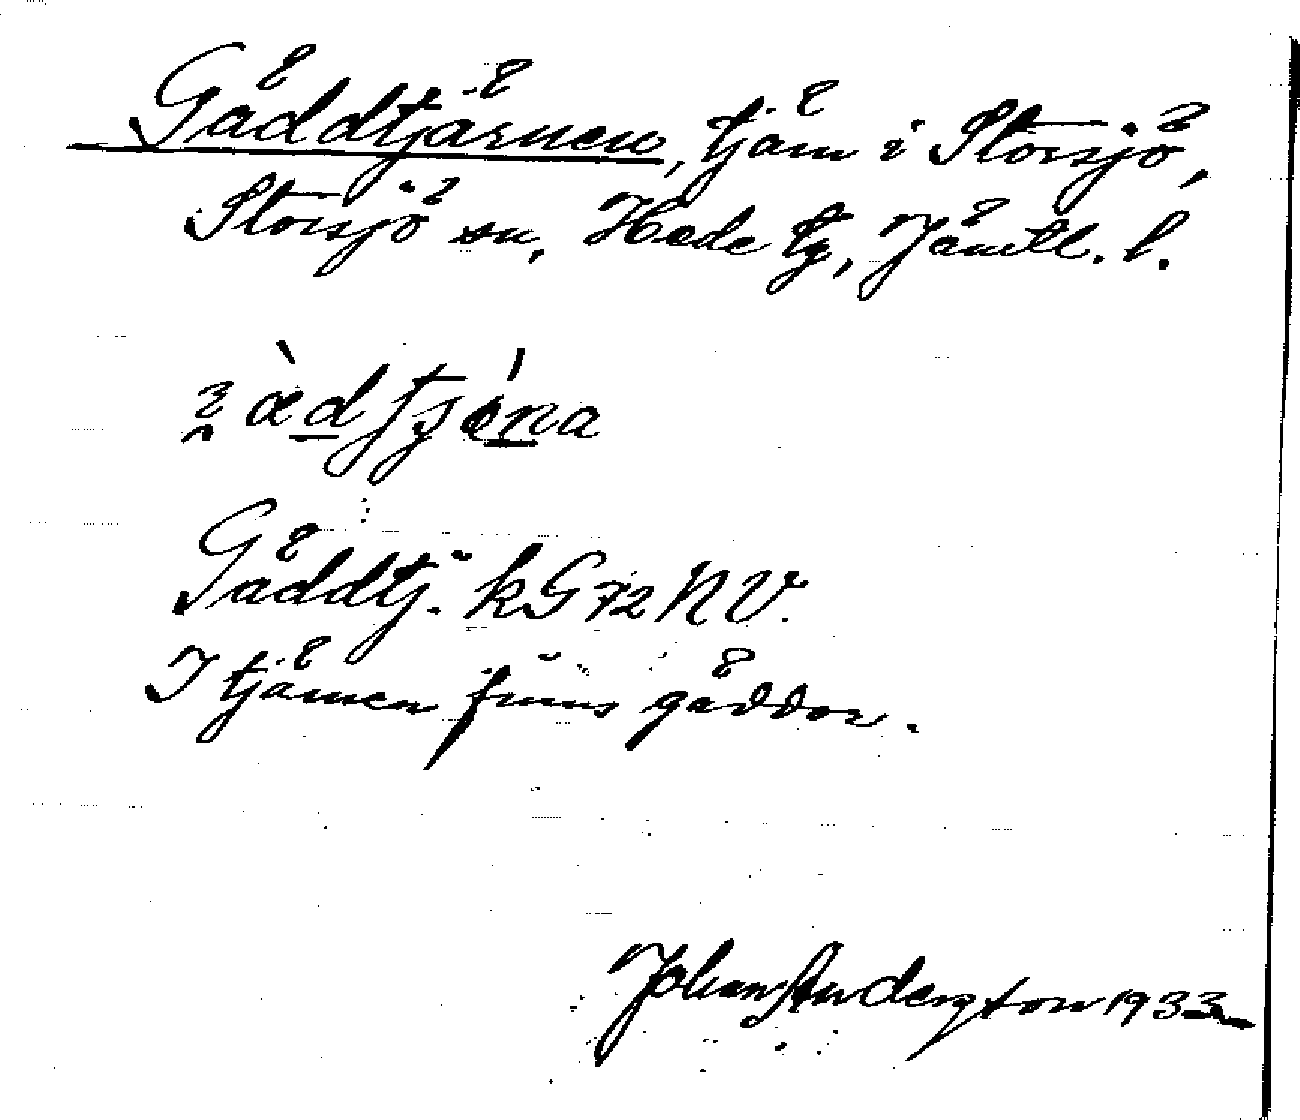 Gäddtjärnen, tjärn i Storsjö,
Storsjö sn, Hede tg, Jämtl. l.
Gäddtj. kG72NV.
I tjärnen finns gäddor.
Johan Andersson 1933